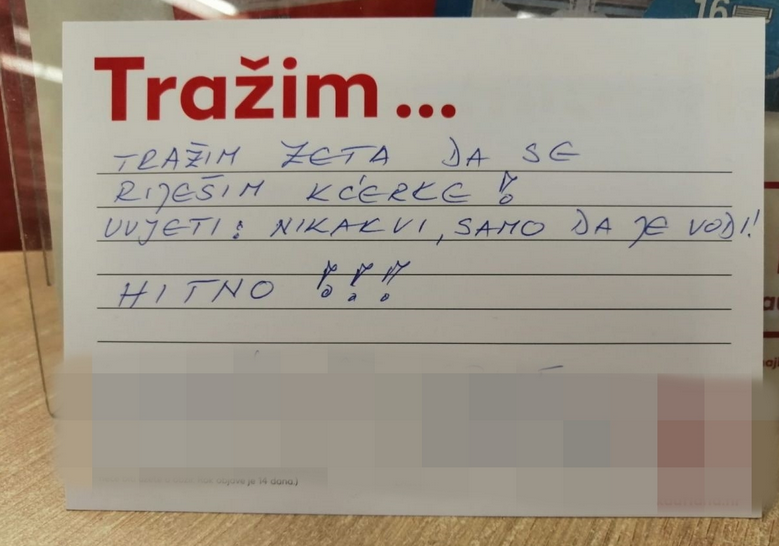 16
Tražim...
TRAŽIM ZETA DA SE
RIJEŠIM KĆERKE!
UVJETI: NIKAKVI, SAMO DA JE VODI!
HITNO !!!
objave je 14 dana)